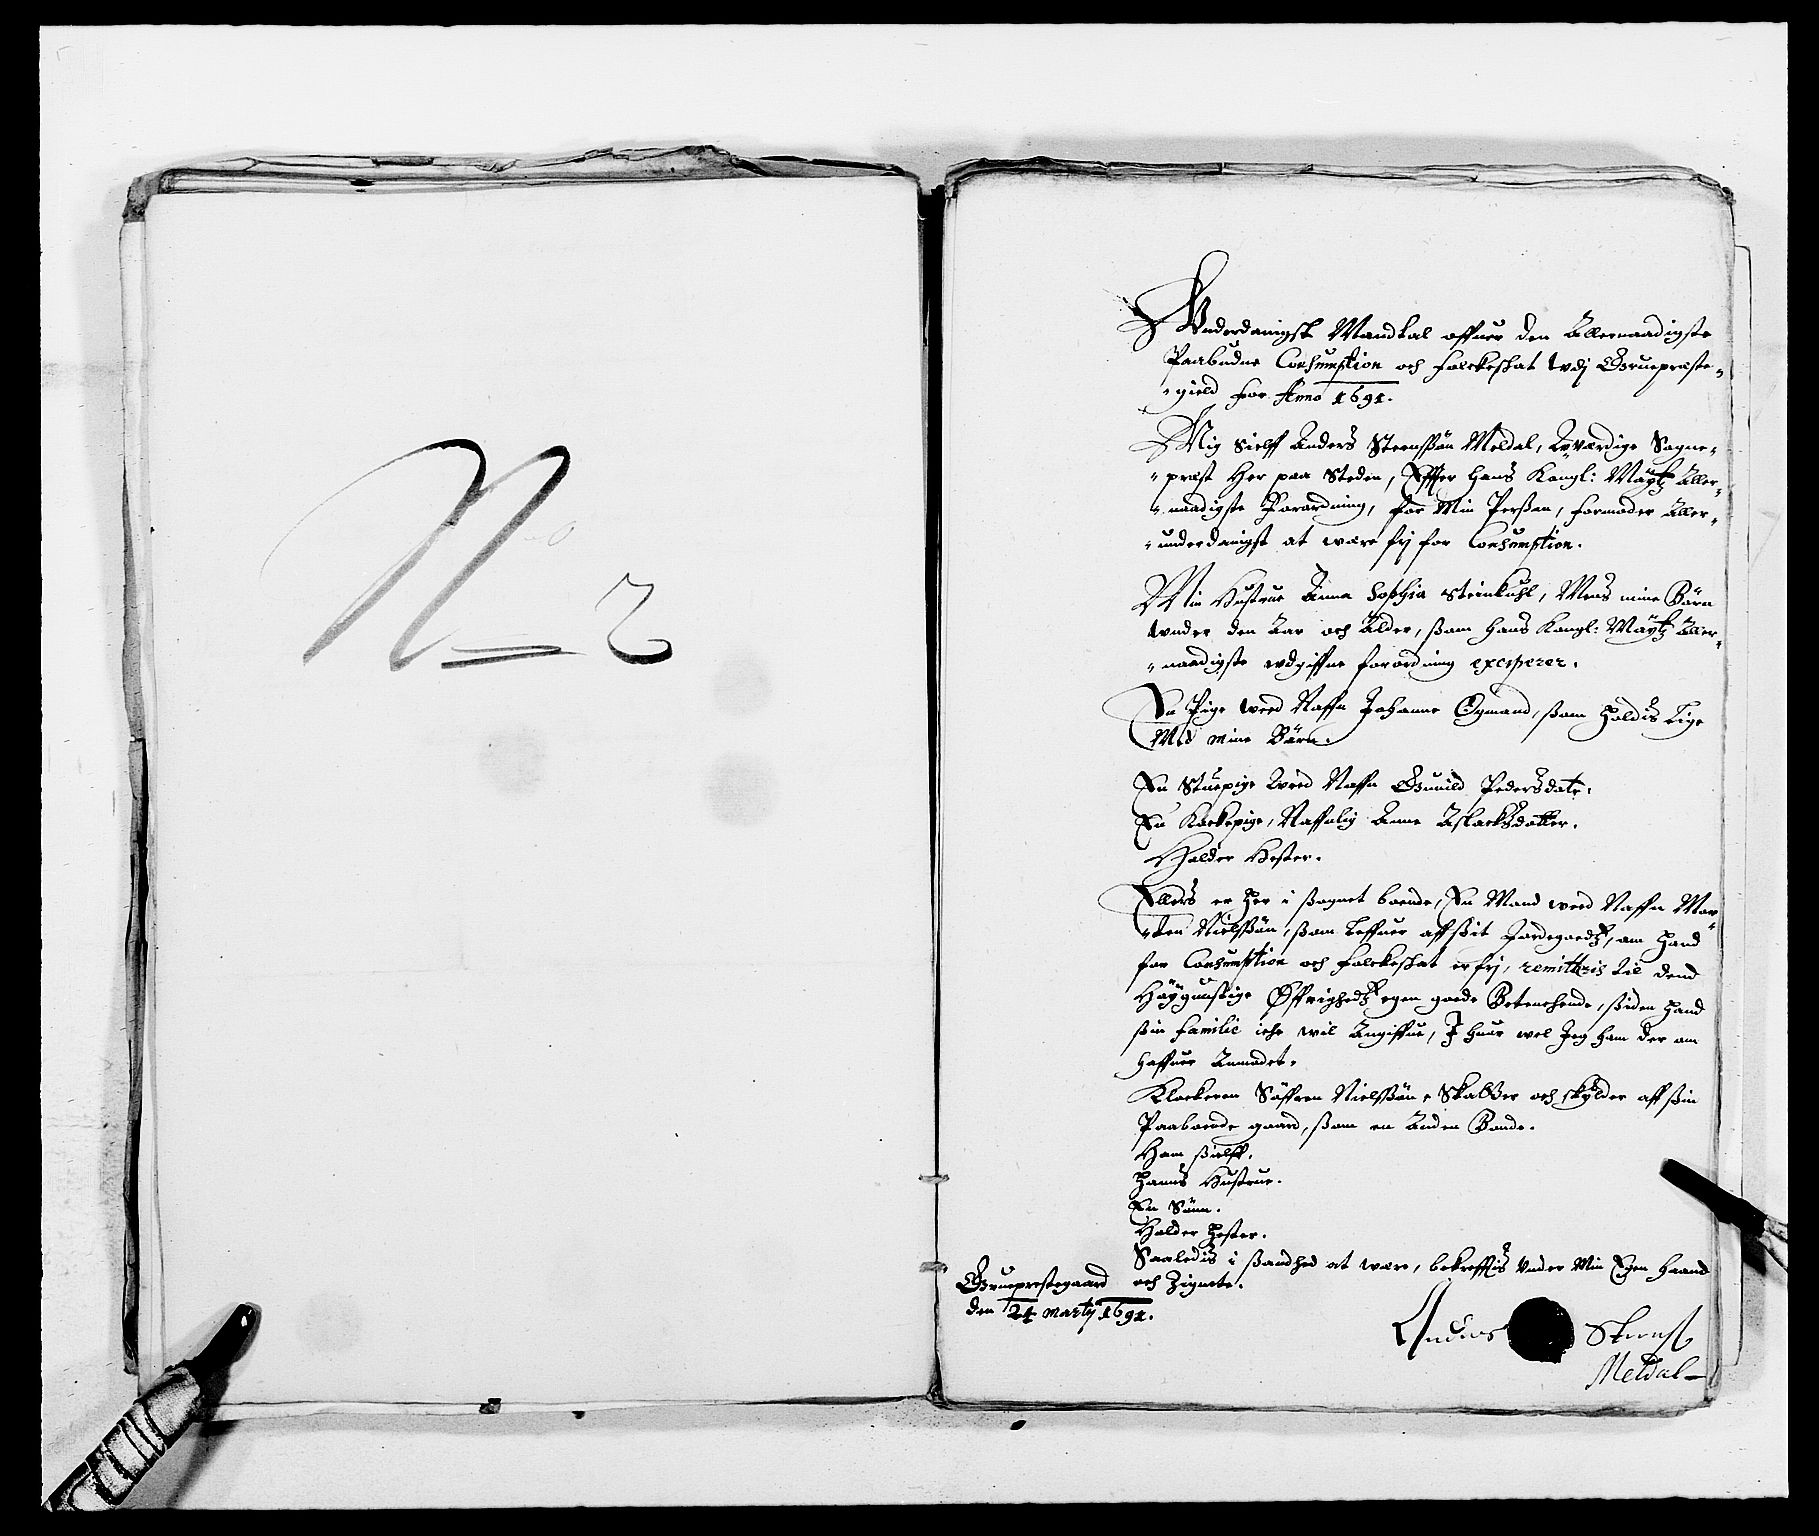 No 2
Underdanigst Mandtal offuer den Allernaadigste
Paabudne Consumption och folckeskat udj Gruepræste-
-gield for Anno 1691.
Mig sielff Anders Steenssøn Meldal, Uværdige Sogne-
-præst her paa Steden, Effter hans Kongl: Maytz Aller-
-naadigste Forordning, for Min Person, formoder Aller-
-underdanigst at være frj for Consumption.
Min Hustrue Anna Sophia Steinkuhl, Mens mine Børn
under den Aar och Alder, ssom hans Kongl: Maytz Aller-
-naadigste udgiffne forordning exciperer.
En Pige wed Naffn Johanne Ogmand, ssom holdis lige
Med mine Børn.
En Stuepige wed Naffn Gunild Pedersdatr:
En Kockepige, Naffnlig Anne Aslacksdatter.
Holder Hester.
Ellers er her i ssognet boende, En Mand wed Naffn Mor-
-ten Nielssøn, ssom leffuer aff ssit Jordegoedtz, om hand
for Consumption och folckeskat er frj, remitteris til dend
Høygunstige Øffrighedtz egen goede Betenchende, ssiden hand
ssin familie iche wil Angiffue, I huor wel Jeg ham der om
haffuer Anmodet.
Klockeren Søffren Nielssøn, Skatter och skylder aff ssin
Paaboende gaard, ssom en Anden Bonde.
Ham ssielff.
Hanns Hustrue.
En Sønn.
Holder Hester.
Saaledis i ssandhed at være, bekrefftis Under Min Egen Haand
och Zignete.
Grueprestegaard
den 24 Martij 1691.
Anders Steenss
Meldal